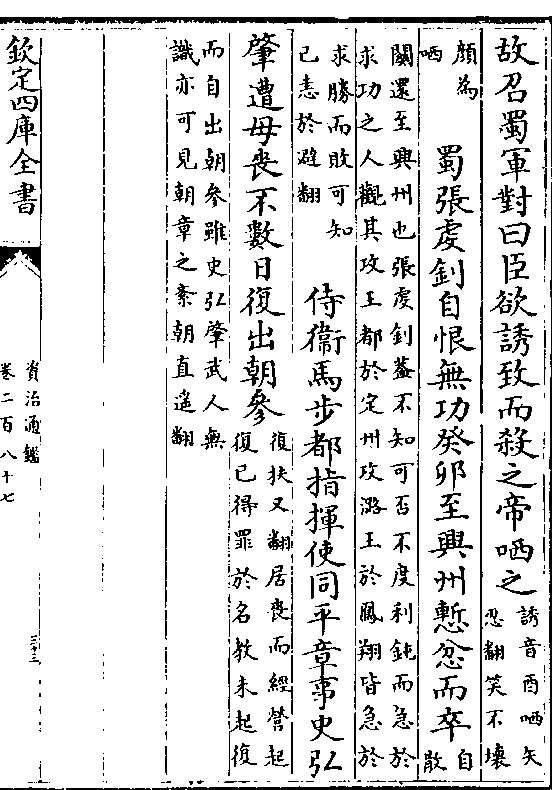 故召蜀軍對曰臣欲誘致而殺之帝哂之誘音酉哂矢
忍翻笑不壊
顔為
哂
蜀張虔釗自恨無功癸卯至興州慙忿而卒自
散
關還至興州也張虔釗蓋不知可否不度利鈍而急於
求功之人觀其攻王都於定州攻潞王於鳳翔皆急於
求勝而敗可知
已恚於避翻
侍衞馬步都指揮使同平章事史弘
肇遭母喪不數日復出朝參復扶又翻居喪而經營起
復已得罪於名教未起復
而自出朝參雖史弘肇武人無
識亦可見朝章之紊朝直遥翻
欽定四庫全書
資治通鑑
卷二百八十七
三十三